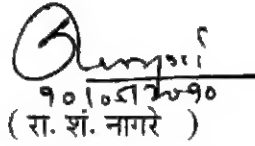 १०।०५।२०१०
( रा. शं. नागरे )